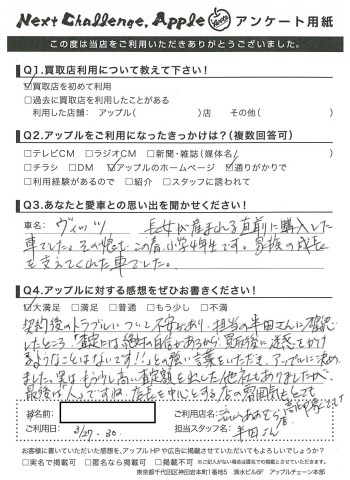 Next Challenge, Apple アンケート用紙
この度は当店をご利用いただきありがとうございました。
Q1.買取店利用について教えて下さい！
☑買取店を初めて利用
□過去に買取店を利用したことがある
利用した店舗： アップル( )店 その他( )
Q2.アップルをご利用になったきっかけは？(複数回答可)
□テレビCM □ラジオCM □新聞・雑誌(媒体名 )
□チラシ □DM ☑アップルのホームページ ☑通りがかりで
□利用経験があるので □紹介 □スタッフに誘われて
Q3.あなたと愛車との思い出を聞かせください！
車名： ヴィッツ 長女が産まれる直前に購入した
車でした。その娘もこの春小学4年生です。家族の成長
を支えてくれた車でした。
Q4.アップルに対する感想をぜひお書きください！
☑大満足 □満足 □普通 □もう少し □不満
契約後のトラブルについて不安もあり、担当の半田さんに確認
したところ「査定には絶対の自信があるから、買取後に迷惑をかけ
るようなことはないです！」との強い言葉をいただき、アップルに決め
ました。実はもう少し高い査定額を出した他社もありましたが、
最後は「人」ですね。店長を中心とする店の雰囲気もとても
お名前：
ご利用日： 3/27.30.
ご利用店名：
担当スタッフ名： 半田さん
お客様に書いていただいた感想を、アップルHPや広告に掲載させていただいてもよろしいでしょうか？
□実名で掲載可 □匿名なら掲載可 □掲載不可 ※ご記入がない場合は匿名での掲載とさせていただきます。
東京都千代田区神田岩本町1番地5 清水ビル6F アップルチェーン本部